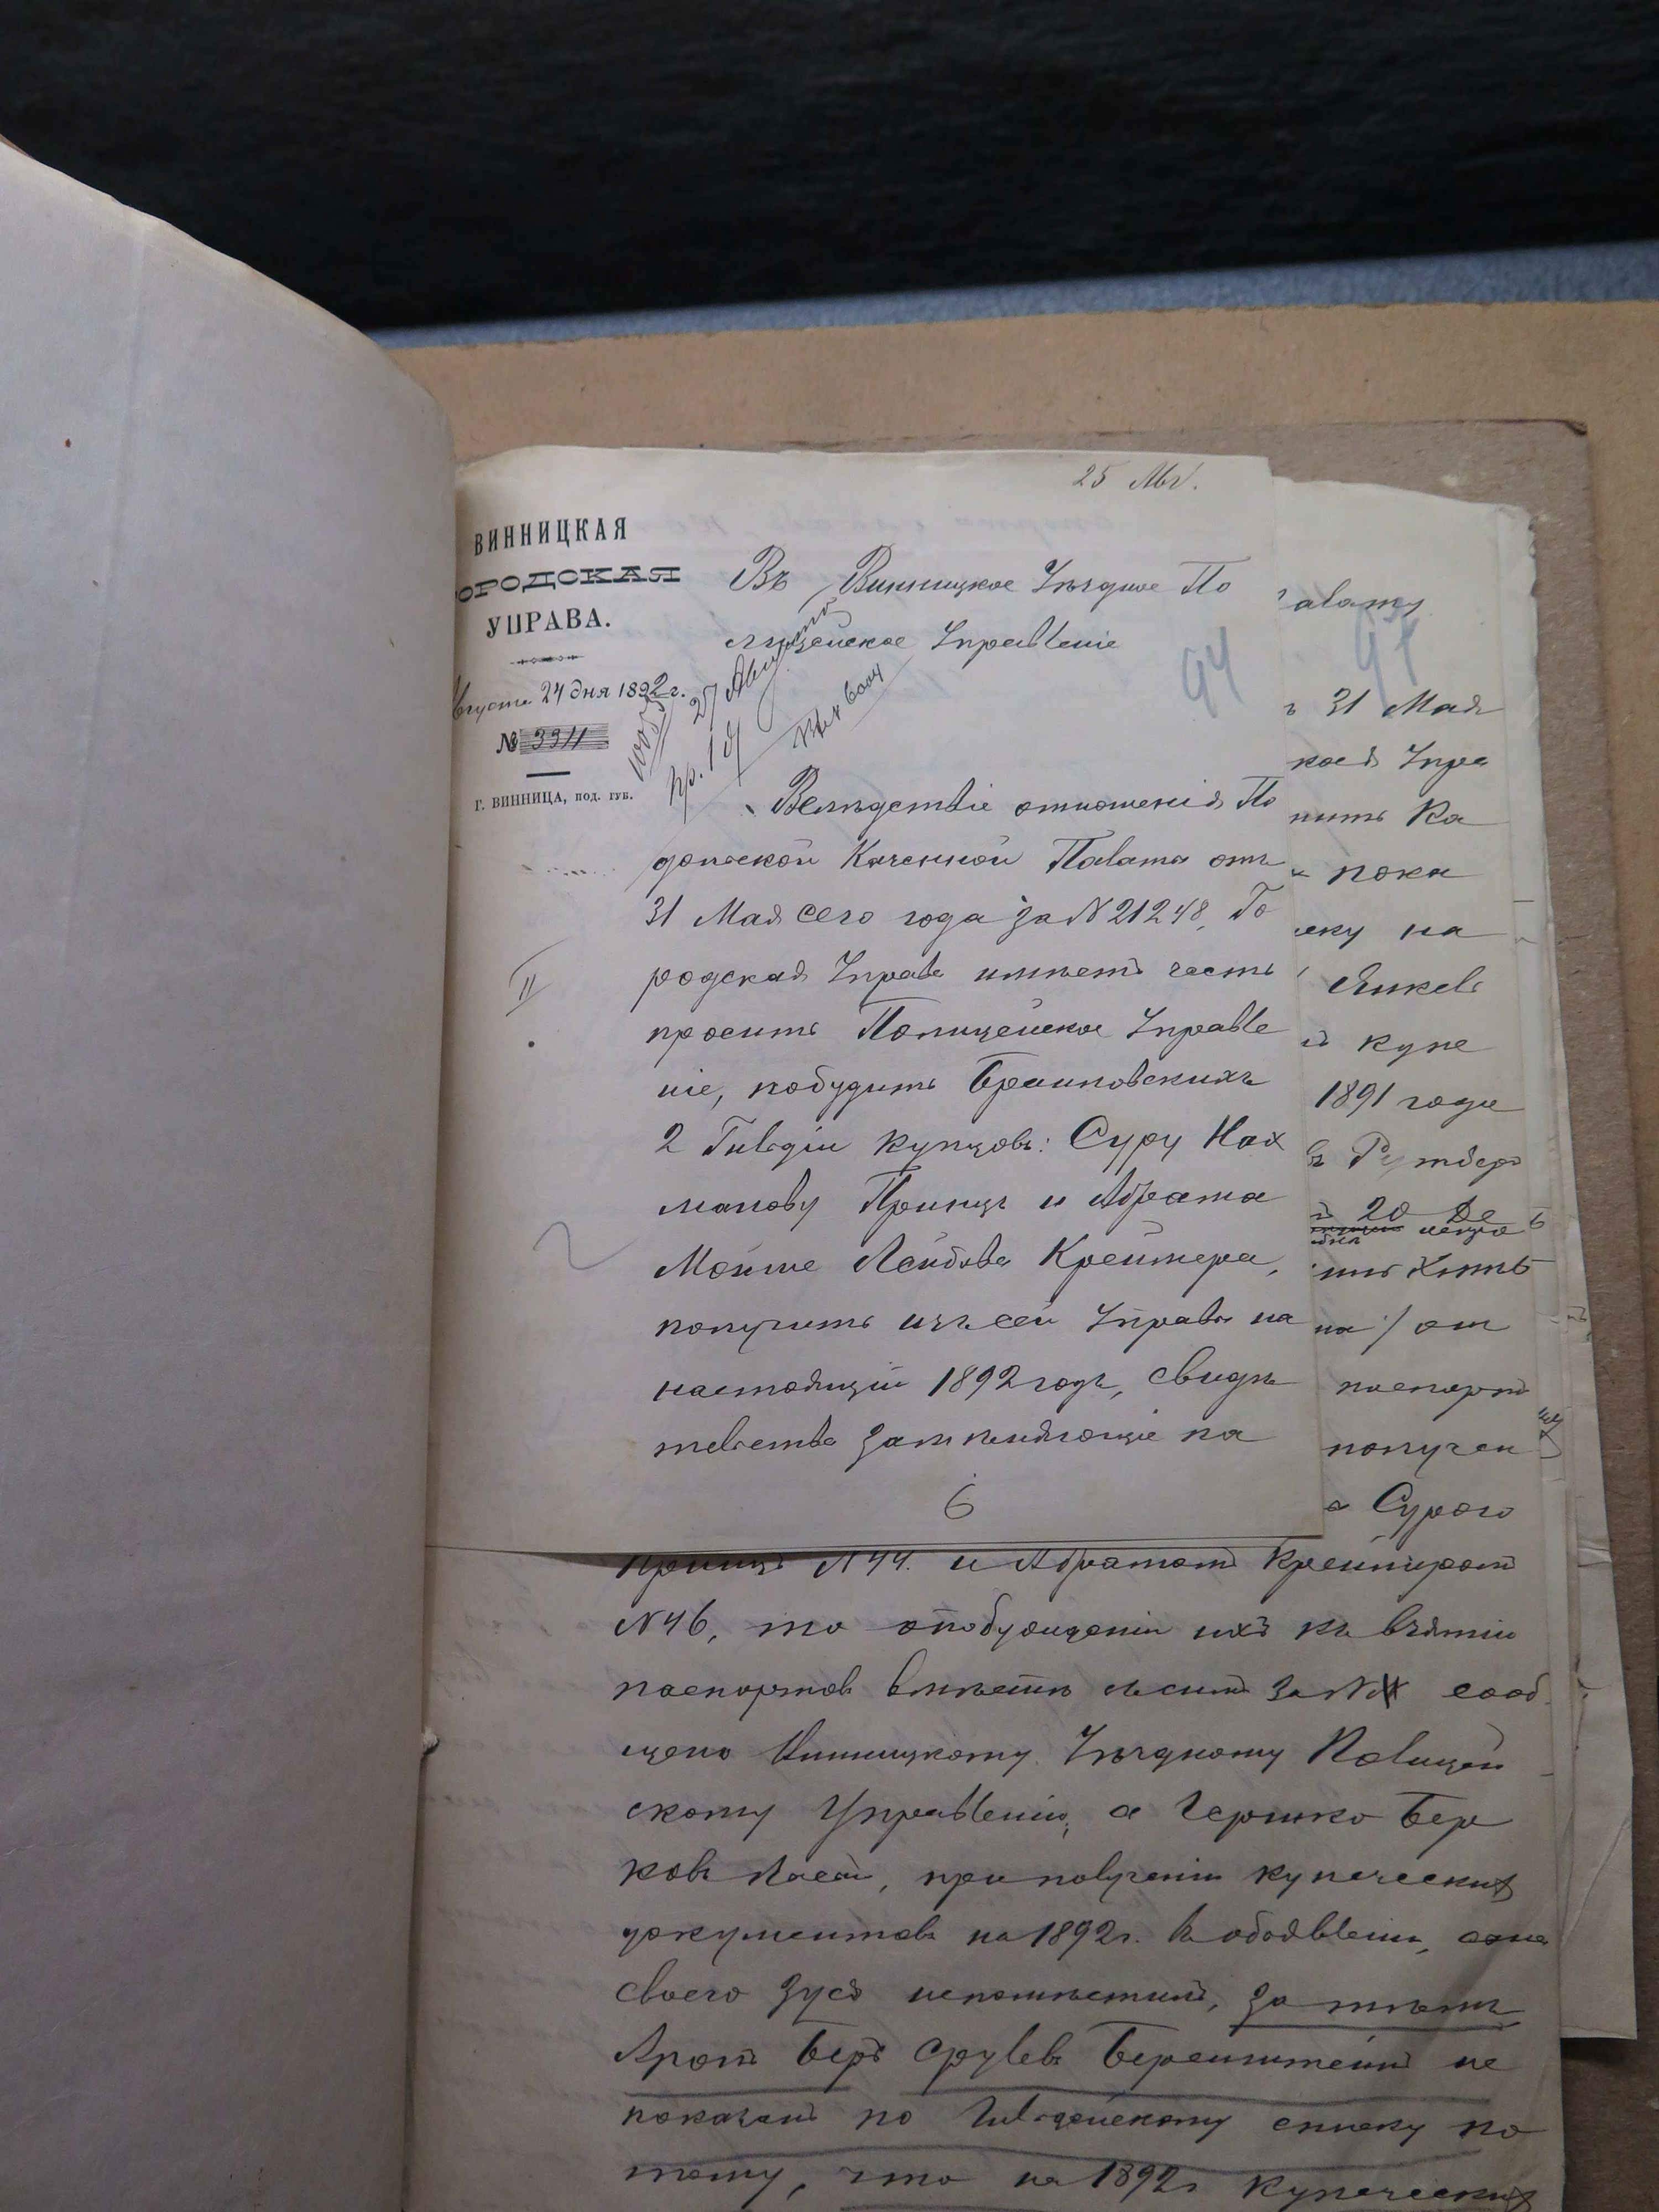 25 Авг.
ВИННИЦКАЯ
ОРОДСКАЯ
УПРАВА.
Августа 24 дня 1892 г.
№ 3911
Г. ВИННИЦА, ПОД. ГУБ.
27 Августа
Въ Винницкое Уѣздное По
лицейское Управленіе
94
Вслѣдствіе отношенія По
дольской Казенной Палаты отъ
31 Мая сего года за № 21248, Го
родская Управа имѣетъ честь
просить Полицейское Управле
ніе, побудить Браиловскихъ
2 Гильдіи купцовъ: Суру Нах
манову Принцъ и Абрама
Мойше Лейбова Креймера,
получить изъ сей Управы на
настоящій 1892 годъ, свидѣ
тельства замѣняющіе па
6
II
алату
91
ъ 31 Мая
кая Упра
нить Ка
пока
ску на
Янкель
й купе
1891 года
20 Де
на / от
паспорт
получен
а Сурою
Принцъ N 44. и Абрамомъ Креймеромъ
N 46, то о побужденіи ихъ къ взятію
паспортовъ вмѣстѣ съ симъ за N сооб
щено Винницкому Уѣздному Полицей
скому Управленію, а Гершко Бер
ковъ Ласъ, при полученіи купеческихъ
документовъ на 1892 г. въ объявленіи, сына
своего Зуся непомѣстилъ, за тѣмъ
Аронъ Беръ Срулевъ Беренштейнъ не
показанъ по Гильдейскому списку по
тому, что на 1892 г купеческихъ